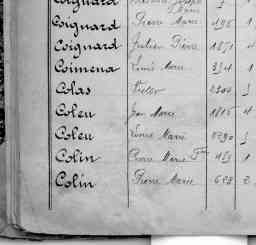 Coignard
Coignard Pierre Marie 196 1
Coignard Julien Pierre 1851 4
Coimena Louis Marie 234 1
Colas Victor
Coleu Jean Marie 1815 4
Coleu Louis Marie
Colin Pierre Marie 1
Colin Pierre Marie 2